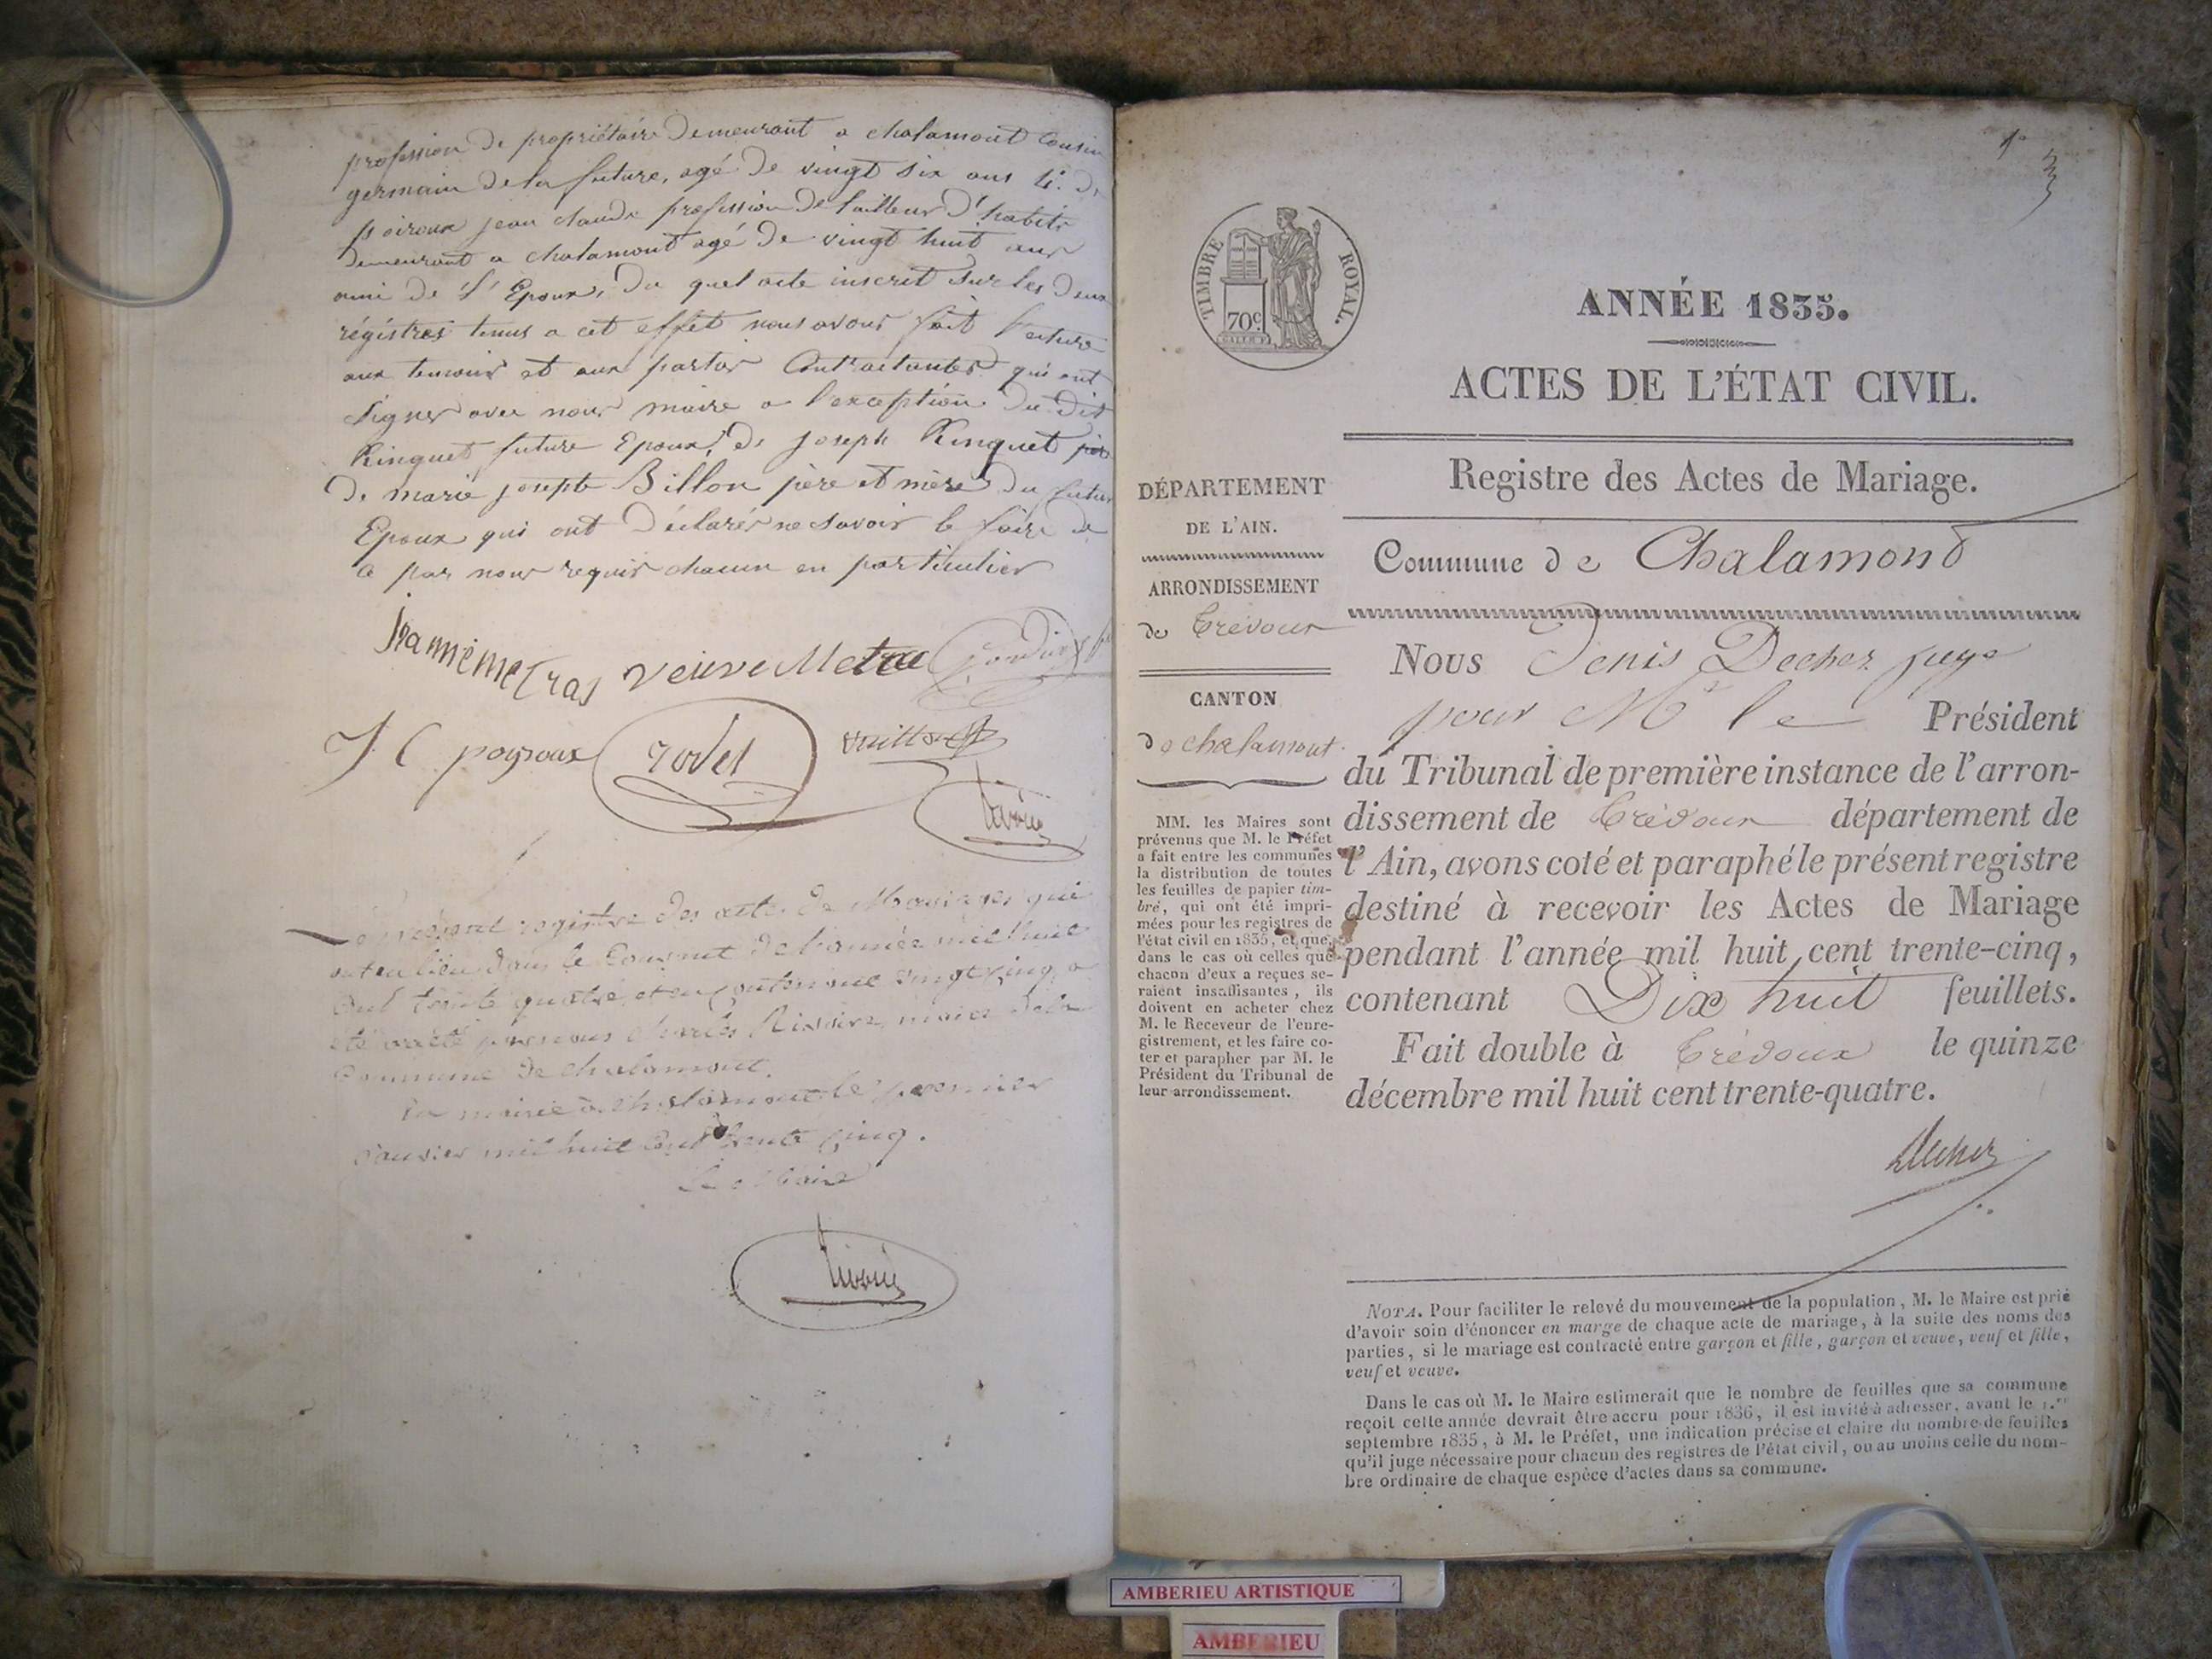 profession de propriétaire demeurant a chalamont Cousin
germain de la future, agé de vingt six ans 4.° de
poiroux jean claude profession de tailleur d'habits
demeurant a chalamont agé de vingt huit ans
ami de l'Epoux, du quel acte inscrit sur les deux
régistres tenus a cet effet nous avons fait lecture
aux temoins et aux parties Contractantes qui ont
Signer avec nous maire a l'exception du dit
Ringuet future Epoux, de joseph Ringuet
de marie josepte Billon père et mère du futur
Epoux qui ont déclarés ne savoir le faire de
ce par nous requis chacun en particulier
veuve Metra
J C poyroux rodet
Le présent registre des actes de Mariages qui
ont eu lieu dans le Courant de l'année mil huit
Cent trente quatre et en contenant vingt cinq, a
été arrêté par nous Charles Rivoire maire de la
Commune de chalamont.
En mairie a chalamont le premier
janvier mil huit Cent trente Cinq.
Le Maire
TIMBRE ROYAL.
70c.
ANNÉE 1835.
ACTES DE L'ÉTAT CIVIL.
Registre des Actes de Mariage.
Commune de Chalamond
DÉPARTEMENT
DE L'AIN.
ARRONDISSEMENT
de Trévoux
CANTON
de chalamont.
MM. les Maires sont
prévenus que M. le Préfet
a fait entre les communes
la distribution de toutes
les feuilles de papier tim-
bré, qui ont été impri-
mées pour les registres de
l'état civil en 1835, et que,
dans le cas où celles que
chacun d'eux a reçues se-
raient insuffisantes, ils
doivent en acheter chez
M. le Receveur de l'enre-
gistrement, et les faire co-
ter et parapher par M. le
Président du Tribunal de
leur arrondissement.
Nous Denis Decher juge
pour Mr le Président
du Tribunal de première instance de l'arron-
dissement de Trévoux département de
l'Ain, avons coté et paraphé le présent registre
destiné à recevoir les Actes de Mariage
pendant l'année mil huit cent trente-cinq,
contenant Dix huit feuillets.
Fait double à Trévoux le quinze
décembre mil huit cent trente-quatre.
NOTA. Pour faciliter le relevé du mouvement de la population, M. le Maire est prié
d'avoir soin d'énoncer en marge de chaque acte de mariage, à la suite des noms des
parties, si le mariage est contracté entre garçon et fille, garçon et veuve, veuf et fille,
veuf et veuve.
Dans le cas où M. le Maire estimerait que le nombre de feuilles que sa commune
reçoit cette année devrait être accru pour 1836, il est invité à adresser, avant le 1.er
septembre 1835, à M. le Préfet, une indication précise et claire du nombre de feuilles
qu'il juge nécessaire pour chacun des registres de l'état civil, ou au moins celle du nom-
bre ordinaire de chaque espèce d'actes dans sa commune.
AMBERIEU ARTISTIQUE
AMBERIEU